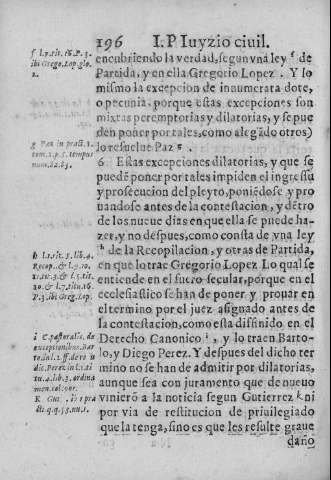 196 I.P Iuyzio ciuil.
encubriendo la verdad, segun vna ley f de
Partida, y en ella Gregorio Lopez. Y lo
mismo la excepcion de innumerata dote,
o pecunia, porque estas excepciones son
mixtas peremptorias y dilatorias, y se pue
den poner por tales, como alegãdo otros)
lo resuelue Paz g.
6. Estas excepciones dilatorias, y que se
puedẽ poner por tales impiden el ingressu
y prosecucion del pleyto, poniẽdose y pro
uandose antes de la contestacion, y dẽtro
de los nueue dias en que ella se puede ha-
zer, y no despues, como consta de vna ley
h de la Recopilacion, y otras de Partida,
en que lo trac Gregorio Lopez Lo qual se
entiende en el fuero secular, porque en el
ecclesiastico se han de poner y prouar en
el termino por el juez asignado antes de
la contestacion, como esta difinido en el
Derecho Canonico i, y lo traen Barto-
lo, y Diego Perez. Y despues del dicho ter
mino no se han de admitir por dilatorias,
aunque sea con juramento que de nueuo
vinierõ a la noticia segun Gutierrez k ni
por via de restitucion de priuilegiado
que la tenga, sino es que les resulte graue
daño
f l.9.tit.16.P.3.
ibi Grego.Lop.glo.
2.
g Paz in pract.1.
tom.1.p.5.tempus
num.22.63.
h l.1.tit.5.lib.4.
Recop.&
P.3.ibi Greg.Lop.
i C. pastoralis, de
exceptionibus.Bar